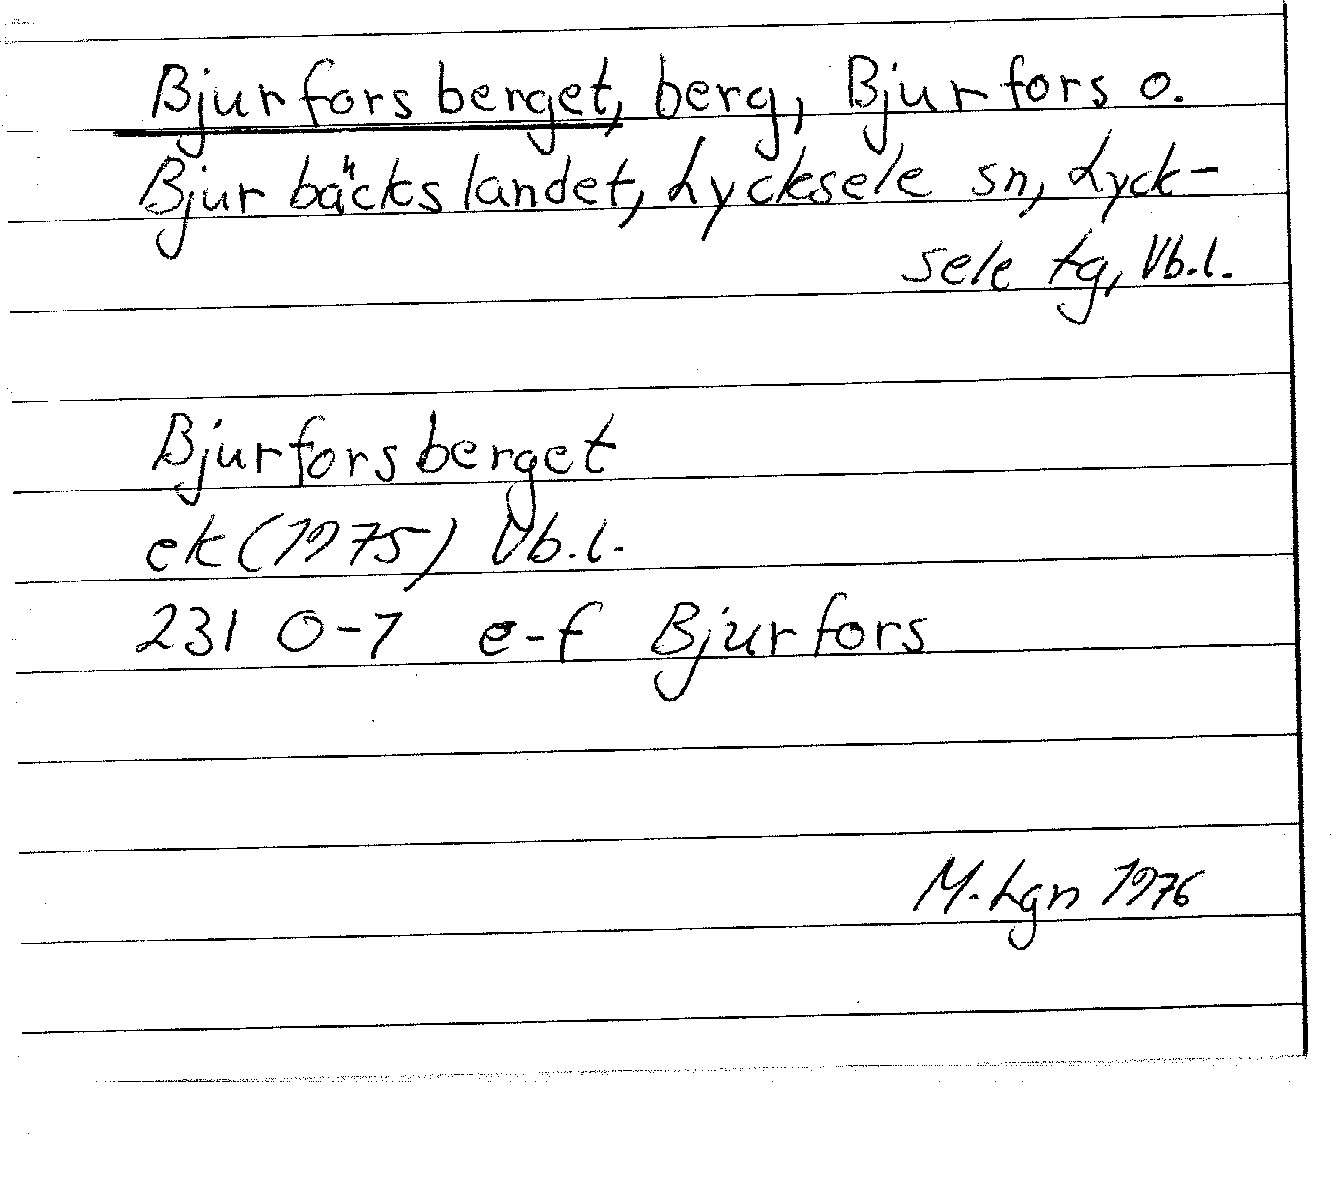 Bjurforsberget, berg, Bjurfors o.
Bjurbäckslandet, Lycksele sn, Lyck-
sele tg, Vb.l.
Bjurforsberget
ek (1975) Vb.l.
231 0-7 e-f Bjurfors
M. Lgn 1976